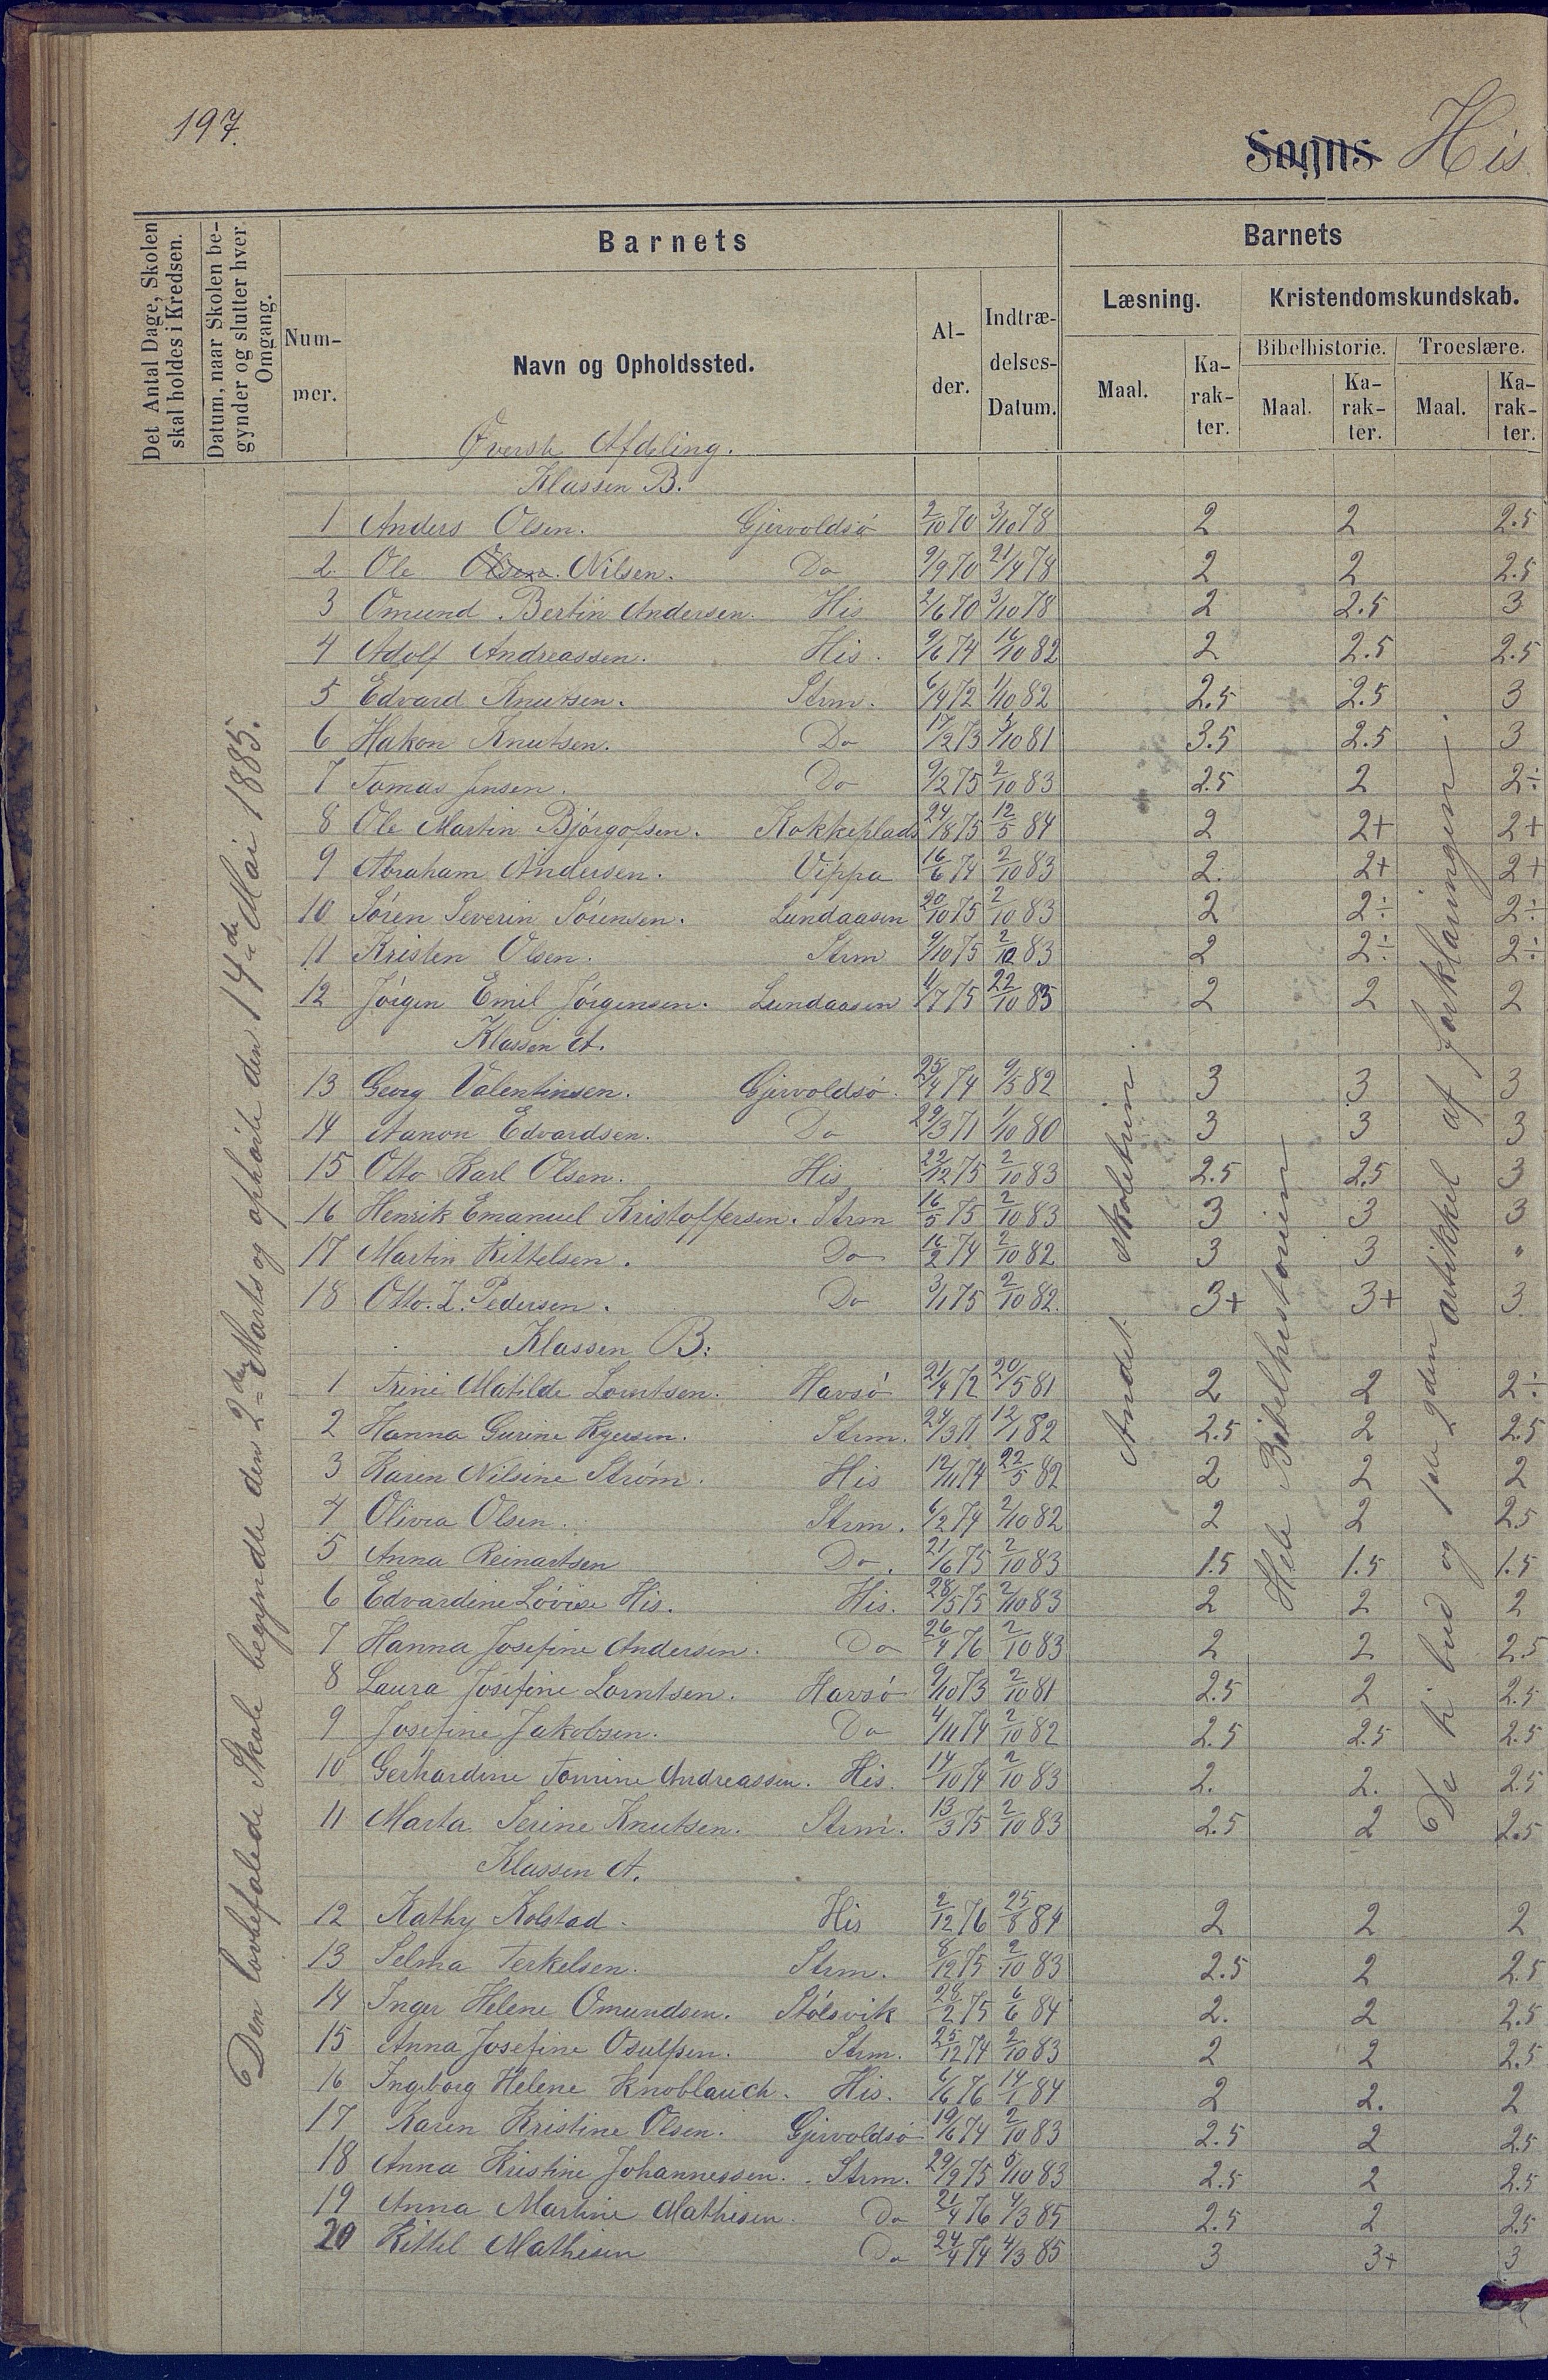 197.
Sogns His
Det Antal Dage, Skolen skal holdes i Kredsen.
Datum, naar Skolen begynder og slutter hver Omgang.
Barnets
Barnets
Nummer.
Navn og Opholdssted.
Alder.
Indtrædelses-Datum.
Læsning.
Kristendomskundskab.
Maal.
Karakter.
Bibelhistorie.
Troeslære.
Maal.
Karakter.
Maal.
Karakter.
Den lovbefalede Skole begyndte den 2den Marts og ophørte den 14de Mai 1885.
Andet skoletrin.
Hele Bibelhistorien
De ti bud og 1ste 2den artikkel af forklaringen
Øverste Afdeling.
Klassen B.
1 Anders Olsen. Gjervoldsø 2/10 70 3/10 78 2 2 2.5
2 Ole Olsen. Nilsen. Do 9/9 70 21/4 78 2 2 2.5
3 Omund Bertin Andersen. His 2/6 70 3/10 78 2 2.5 3
4 Adolf Andreassen. His. 9/6 74 16/10 82 2 2.5 2.5
5 Edvard Knutsen. Strm. 6/4 72 1/10 82 2.5 2.5 3
6 Hakon Knutsen. Do 17/2 73 3/10 81 3.5 2.5 3
7 Tomas Jensen. Do 9/2 75 2/10 83 2.5 2 2÷
8 Ole Martin Bjørgolsen. Kokkeplads 24/8 75 12/5 84 2 2+ 2+
9 Abraham Andersen. Vippa 16/6 74 2/10 83 2. 2+ 2+
10 Søren Severin Sørensen. Lundaasen 20/10 75 2/10 83 2 2÷ 2÷
11 Kristen Olsen. Strm 9/10 75 2/10 83 2 2÷ 2÷
12 Jørgen Emil Jørgensen. Lundaasen 11/7 75 22/10 83 2 2 2
Klassen A.
13 Georg Valentinsen. Gjervoldsø. 25/4 74 9/5 82 3 3 3
14 Aanon Edvardsen. Do 29/3 71 1/10 80 3 3 3
15 Otto Karl Olsen. His 22/12 75 2/10 83 2.5 2.5 3
16 Henrik Emanuel Kristoffersen. Strm 16/5 75 2/10 83 3 3 3
17 Martin Kittelsen. Do 16/2 74 2/10 82 3 3 "
18 Otto. Z. Pedersen. Do 3/1 75 2/10 82. 3+ 3+ 3
Klassen B:
1 Trine Matilde Lorntsen. Havsø 21/4 72 20/5 81 2 2 2÷
2 Hanna Gurine Kgersen. Strm. 24/3 71 12/1 82 2.5 2 2.5
3 Karen Nilsine Strøm. His 12/11 74 22/5 82 2 2 2
4 Olivia Olsen. Strm. 6/2 74 2/10 82 2 2 2.5
5 Anna Reinartsen Do. 21/6 75 2/10 83 1.5 1.5 1.5
6 Edvardine Lovise His. His. 28/5 75 2/10 83 2 2 2
7 Hanna Josefine Andersen. Do 26/4 76 2/10 83 2 2 2.5
8 Laura Josefine Lorntsen. Havsø 9/10 73 2/10 81 2.5 2 2.5
9 Josefine Jakobsen. Do 4/11 74 2/10 82 2.5 2.5 2.5
10 Gerhardine Tomine Andreassen. His. 14/10 74 2/10 83 2. 2. 2.5
11 Marta Serine Knutsen. Strm. 13/3 75 2/10 83 2.5 2 2.5
Klassen A.
12 Kathy Kolstad. His 2/12 76 25/8 84 2 2 2
13 Selma Terkelsen. Strm. 8/12 75 2/10 83 2.5 2 2.5
14 Inger Helene Omundsen. Stølsvik 28/2 75 6/6 84 2. 2 2.5
15 Anna Josefine Osulfsen. Strm. 25/12 74 2/10 83 2 2 2.5
16 Ingeborg Helene Knoblauch. His. 6/6 76 14/1 84 2 2. 2
17 Karen Kristine Olsen. Gjervoldsø 19/6 74 2/10 83 2.5 2 2.5
18 Anna Kristine Johannessen. Strm. 29/9 75 5/10 83 2.5 2 2.5
19 Anna Martine Mathisen Do 21/4 76 4/3 85 2.5 2 2.5
20 Kittel Mathisen Do 24/4 74 4/3 85 3 3+ 3